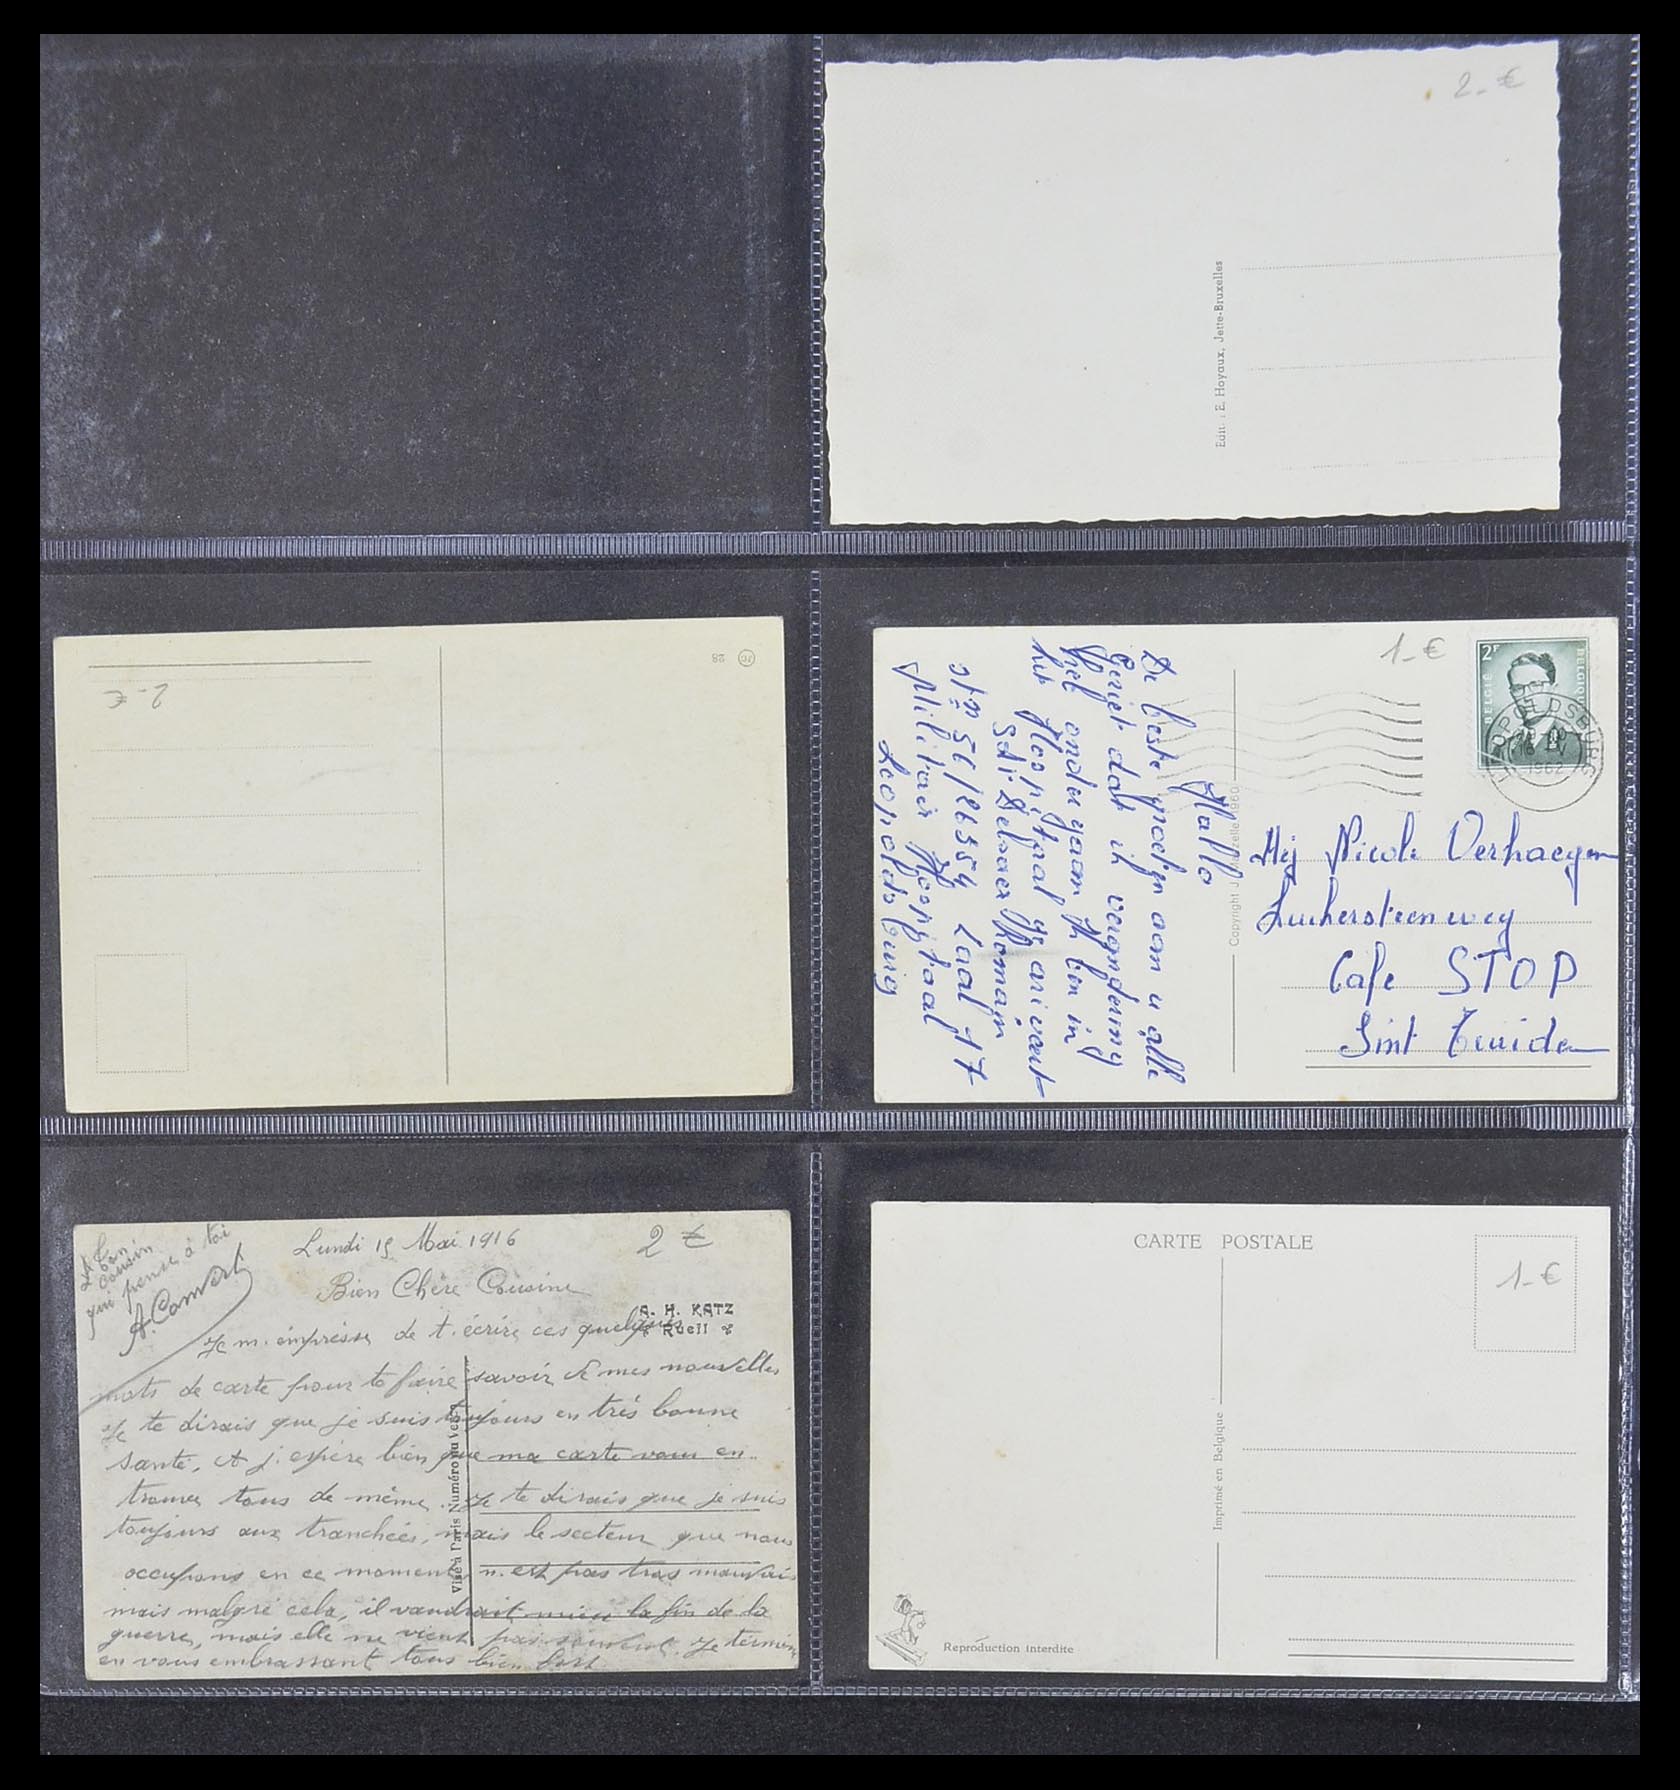 2 - €
Edit. : E. Hoyaux, Jette-Bruxelles
28
2 - €
1 - €
2F
BELGIË
BELGIQUE
LEOPOLDSBURG
1962
Hallo
De beste groetjes aan u alle
Geniet dat ik verandering
heb ondergaan Ik ben in
het Hospitaal geariveert
Sdt. Delvaer Romain
st n° 56/26554 Zaal 17
Militair Hospitaal
Leopoldsburg
Copyright
1960
Mej Nicole Verhaegen
Luikersteenweg
Cafe STOP
Sint Truiden
Lundi 15 Mai 1916
2 €
Ton
Cousin
qui pense à toi
A. Convert
Bien Chère Cousine
A. H. KATZ
Rueil
Je m. empresse de t. écrire ces quelques
mots de carte pour te faire savoir de mes nouvelles
Je te dirais que je suis toujours en très bonne
santé, et j. espère bien que ma carte vous en
trouve tous de même. Je te dirais que je suis
toujours aux tranchées, mais le secteur que nous
occupons en ce moment n. est pas tros mauvais
mais malgré cela, il vaudrait mieu la fin de la
guerre, mais elle ne vient pas souvent. Je termine
en vous embrassant tous bien fort
Visé à Paris Numéro au verso
CARTE POSTALE
1 - €
Imprimé en Belgique
Reproduction interdite